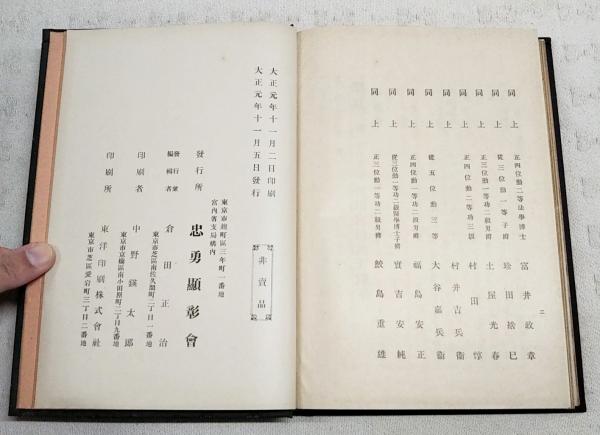 同上 正四位勳二等法學博士 富井政章
同上 從三位勳一等子爵 珍田捨巳
同上 正三位勳一等功二級男爵 土屋光春
同上 正四位勳二等功三級 村田惇
同上 村井吉兵衞
同上 從五位勳三等 大谷嘉兵衞
同上 正四位勳一等功二級男爵 福島安正
同上 從三位勳一等功二級醫學博士子爵 實吉安純
同上 正三位勳一等功二級男爵 鮫島重雄
二
大正元年十一月二日印刷
大正元年十一月五日發行
非賣品
東京市麹町區三年町一番地
宮内省支局構内
發行所 忠勇顯彰會
發行兼編輯者 倉田正治
東京市芝區南佐久間町二丁目一番地
印刷者 中野鍈太郎
東京市京橋區南小田原町二丁目九番地
印刷所 東洋印刷株式會社
東京市芝區愛宕町三丁目二番地